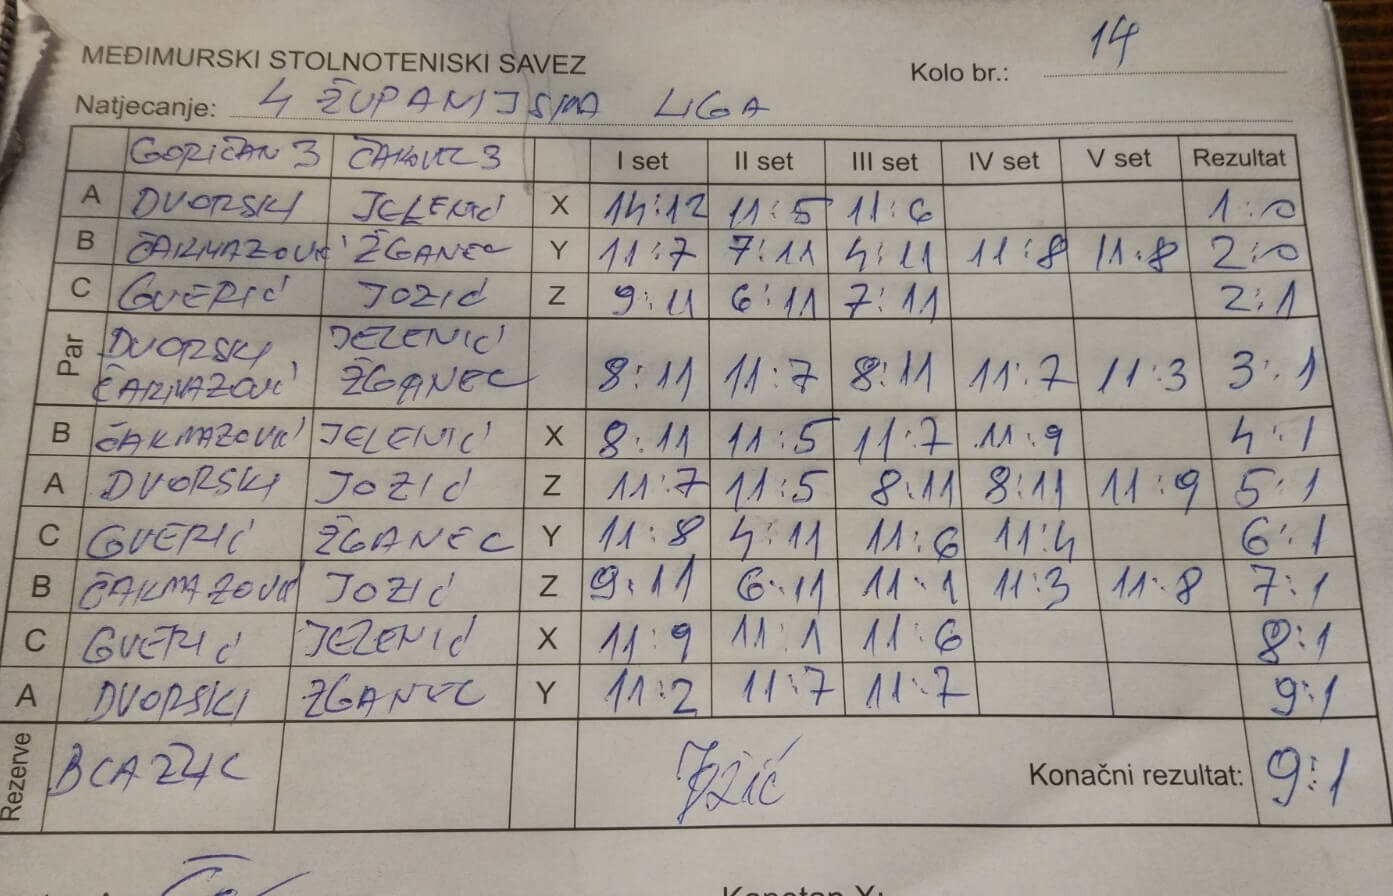 MEĐIMURSKI STOLNOTENISKI SAVEZ
Kolo br.: 14
Natjecanje: 4 ŽUPANIJSKA LIGA
GORIČAN 3 ČAKOVEC 3 I set II set III set IV set V set Rezultat
A DVORSKI JELENIĆ X 14:12 11:5 11:6 1:0
B ČAKMAZOVIĆ ŽGANEC Y 11:7 7:11 4:11 11:8 11:8 2:0
C GVERIĆ JOZIĆ Z 9:11 6:11 7:11 2:1
Par DVORSKI JELENIĆ
ČAKMAZOVIĆ ŽGANEC 8:11 11:7 8:11 11:7 11:3 3:1
B ČAKMAZOVIĆ JELENIĆ X 8:11 11:5 11:7 11:9 4:1
A DVORSKI JOZIĆ Z 11:7 11:5 8:11 8:11 11:9 5:1
C GVERIĆ ŽGANEC Y 11:8 4:11 11:6 11:4 6:1
B ČAKMAZOVIĆ JOZIĆ Z 9:11 6:11 11:1 11:3 11:8 7:1
C GVERIĆ JELENIĆ X 11:9 11:1 11:6 8:1
A DVORSKI ŽGANEC Y 11:2 11:7 11:7 9:1
Rezerve Konačni rezultat: 9:1